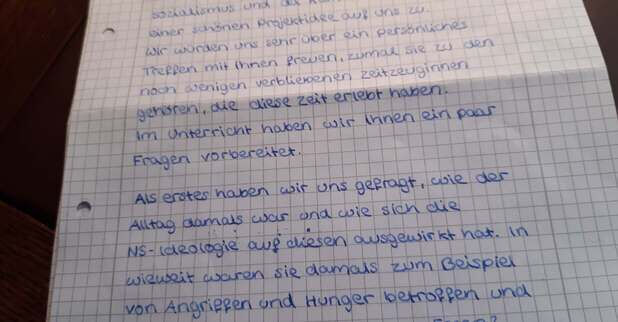 sozialismus und
einer schönen Projektidee auf uns zu.
Wir würden uns sehr über ein persönliches
Treffen mit Ihnen freuen, zumal sie zu den
noch wenigen verbliebenen Zeitzeuginnen
gehören, die diese Zeit erlebt haben.
Im Unterricht haben wir Ihnen ein paar
Fragen vorbereitet.
Als erstes haben wir uns gefragt, wie der
Alltag damals war und wie sich die
NS-Ideologie auf diesen ausgewirkt hat. In
wieweit waren sie damals zum Beispiel
von Angriffen und Hunger betroffen und